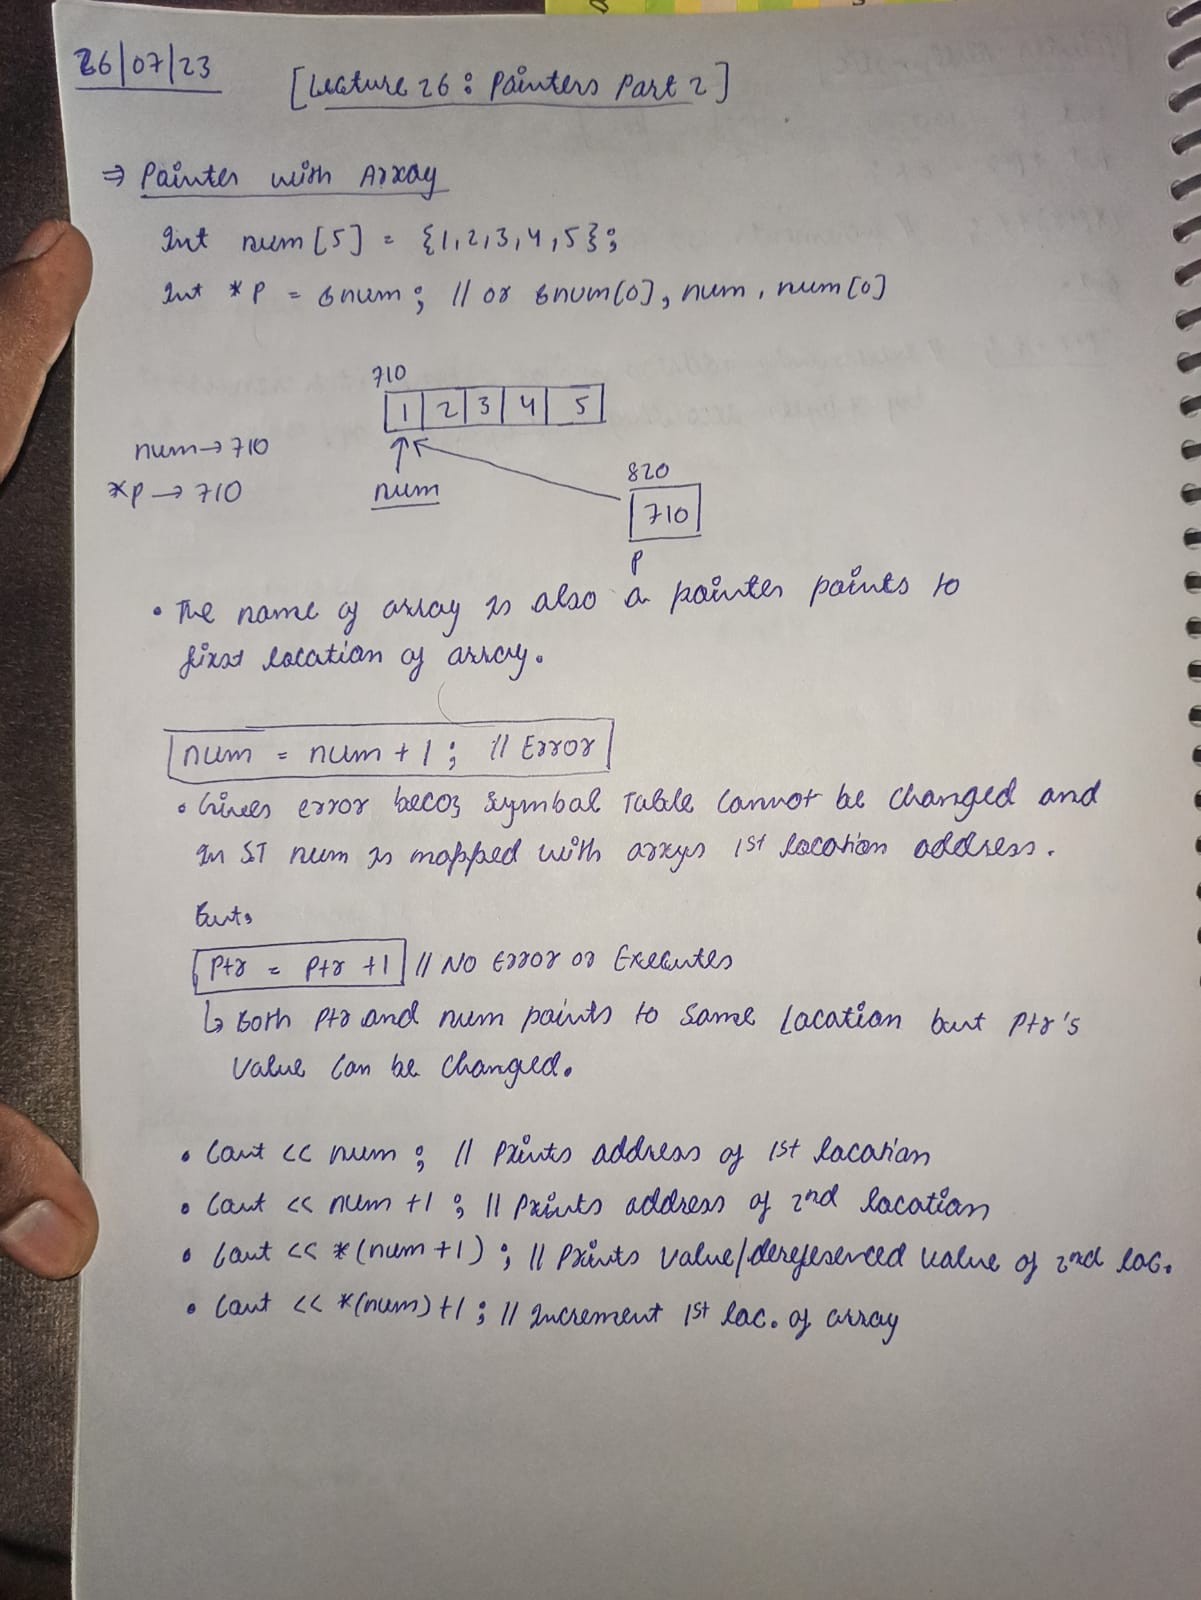 26/07/23
[Lecture 26 : Pointers Part 2]
⇒ Pointer with Array
Int num[5] = {1,2,3,4,5};
Int *p = &num ; // or &num[0], num, num[0]
710
1 2 3 4 5
num → 710
*p → 710
num
820
710
p
• The name of array is also a pointer points to
first location of array.
num = num + 1 ; // Error
• Gives error becoz Symbol Table cannot be changed and
In ST num is mapped with arrys 1st location address.
But,
Ptr = Ptr +1 // No Error or Executes
↳ Both Ptr and num points to same location but Ptr's
value can be changed.
• Cout << num ; // Prints address of 1st location
• Cout << num +1 ; // Prints address of 2nd location
• Cout << *(num +1) ; // Prints value/dereferenced value of 2nd loc.
• Cout << *(num) +1 ; // Increment 1st loc. of array